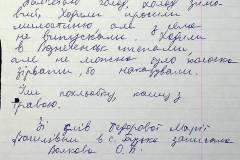 голод, холод зимо-
вий. Ходили просили
милостиню, але з села
не випускали. Ходили
в Вознесенськ степами,
але не можна було колоска
зірвати, бо наказували.
Їли похльобку, кашу з
травою.
Зі слів Федорової Марії
Василівни в с. Бузьке записала
Волкова О. П.